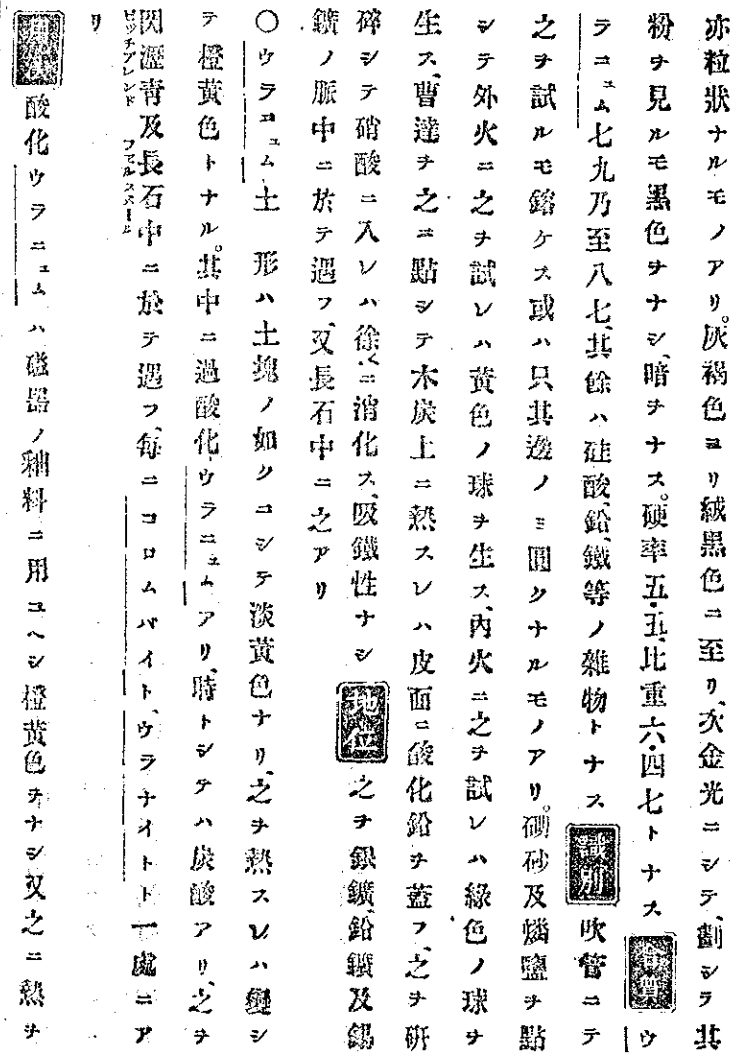 亦粒狀ナルモノアリ。灰褐色ヨリ絨黑色ニ至リ、次金光ニシテ、劃シテ其
粉ヲ見ルモ黑色ヲナシ、暗ヲナス。硬率五・五、比重六・四七トナス 合質 ウ
ラニュム七九乃至八七、其餘ハ硅酸、鉛、鐵等ノ雜物トナス 識別 吹管ニテ
之ヲ試ルモ鎔ケス或ハ只其邊ノミ圓クナルモノアリ。硼砂及燐鹽ヲ點
シテ外火ニ之ヲ試レハ黃色ノ球ヲ生ス、內火ニ之ヲ試レハ綠色ノ球ヲ
生ス、曹達ヲ之ニ點シテ木炭上ニ熱スレハ皮面ニ酸化鉛ヲ蓋フ、之ヲ研
碎シテ硝酸ニ入レハ徐〻ニ消化ス、吸鐵性ナシ 地位 之ヲ銀鑛、鉛鑛及錫
鑛ノ脈中ニ於テ遇フ、又長石中ニ之アリ
〇ウラニュム土 形ハ土塊ノ如クコシテ淡黃色ナリ、之ヲ熱スレハ變シ
テ橙黃色トナル。其中ニ過酸化ウラニュムアリ、時トシテハ炭酸アリ、之ヲ
閃瀝青及長石中ニ於テ遇フ、每ニコロムバイト、ウラナイトト一處ニア
ピッチブレンド ファルスパール
リ
用法 酸化ウラニュムハ磁器ノ釉料ニ用ユヘシ橙黃色ヲナシ又之ニ熱ヲ